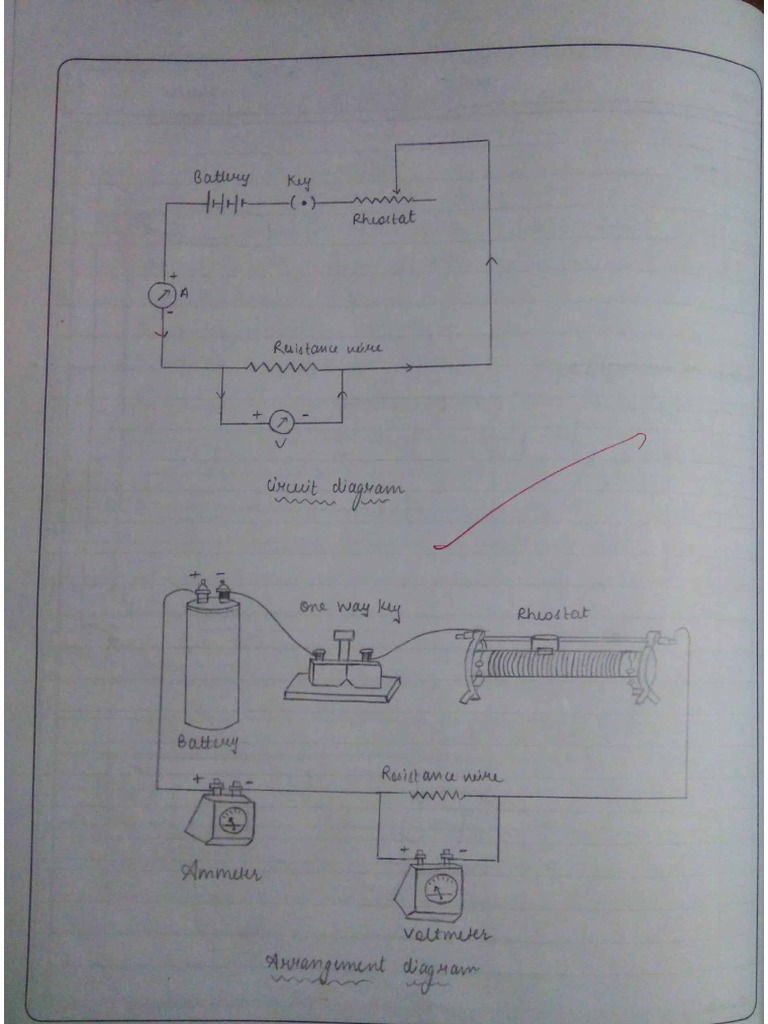 Battery Key
Rheostat
+
A
-
Resistance wire
+ -
V
Circuit diagram
+ -
One way key
Rheostat
Battery
Resistance wire
+ -
Ammeter
+ -
Voltmeter
Arrangement diagram